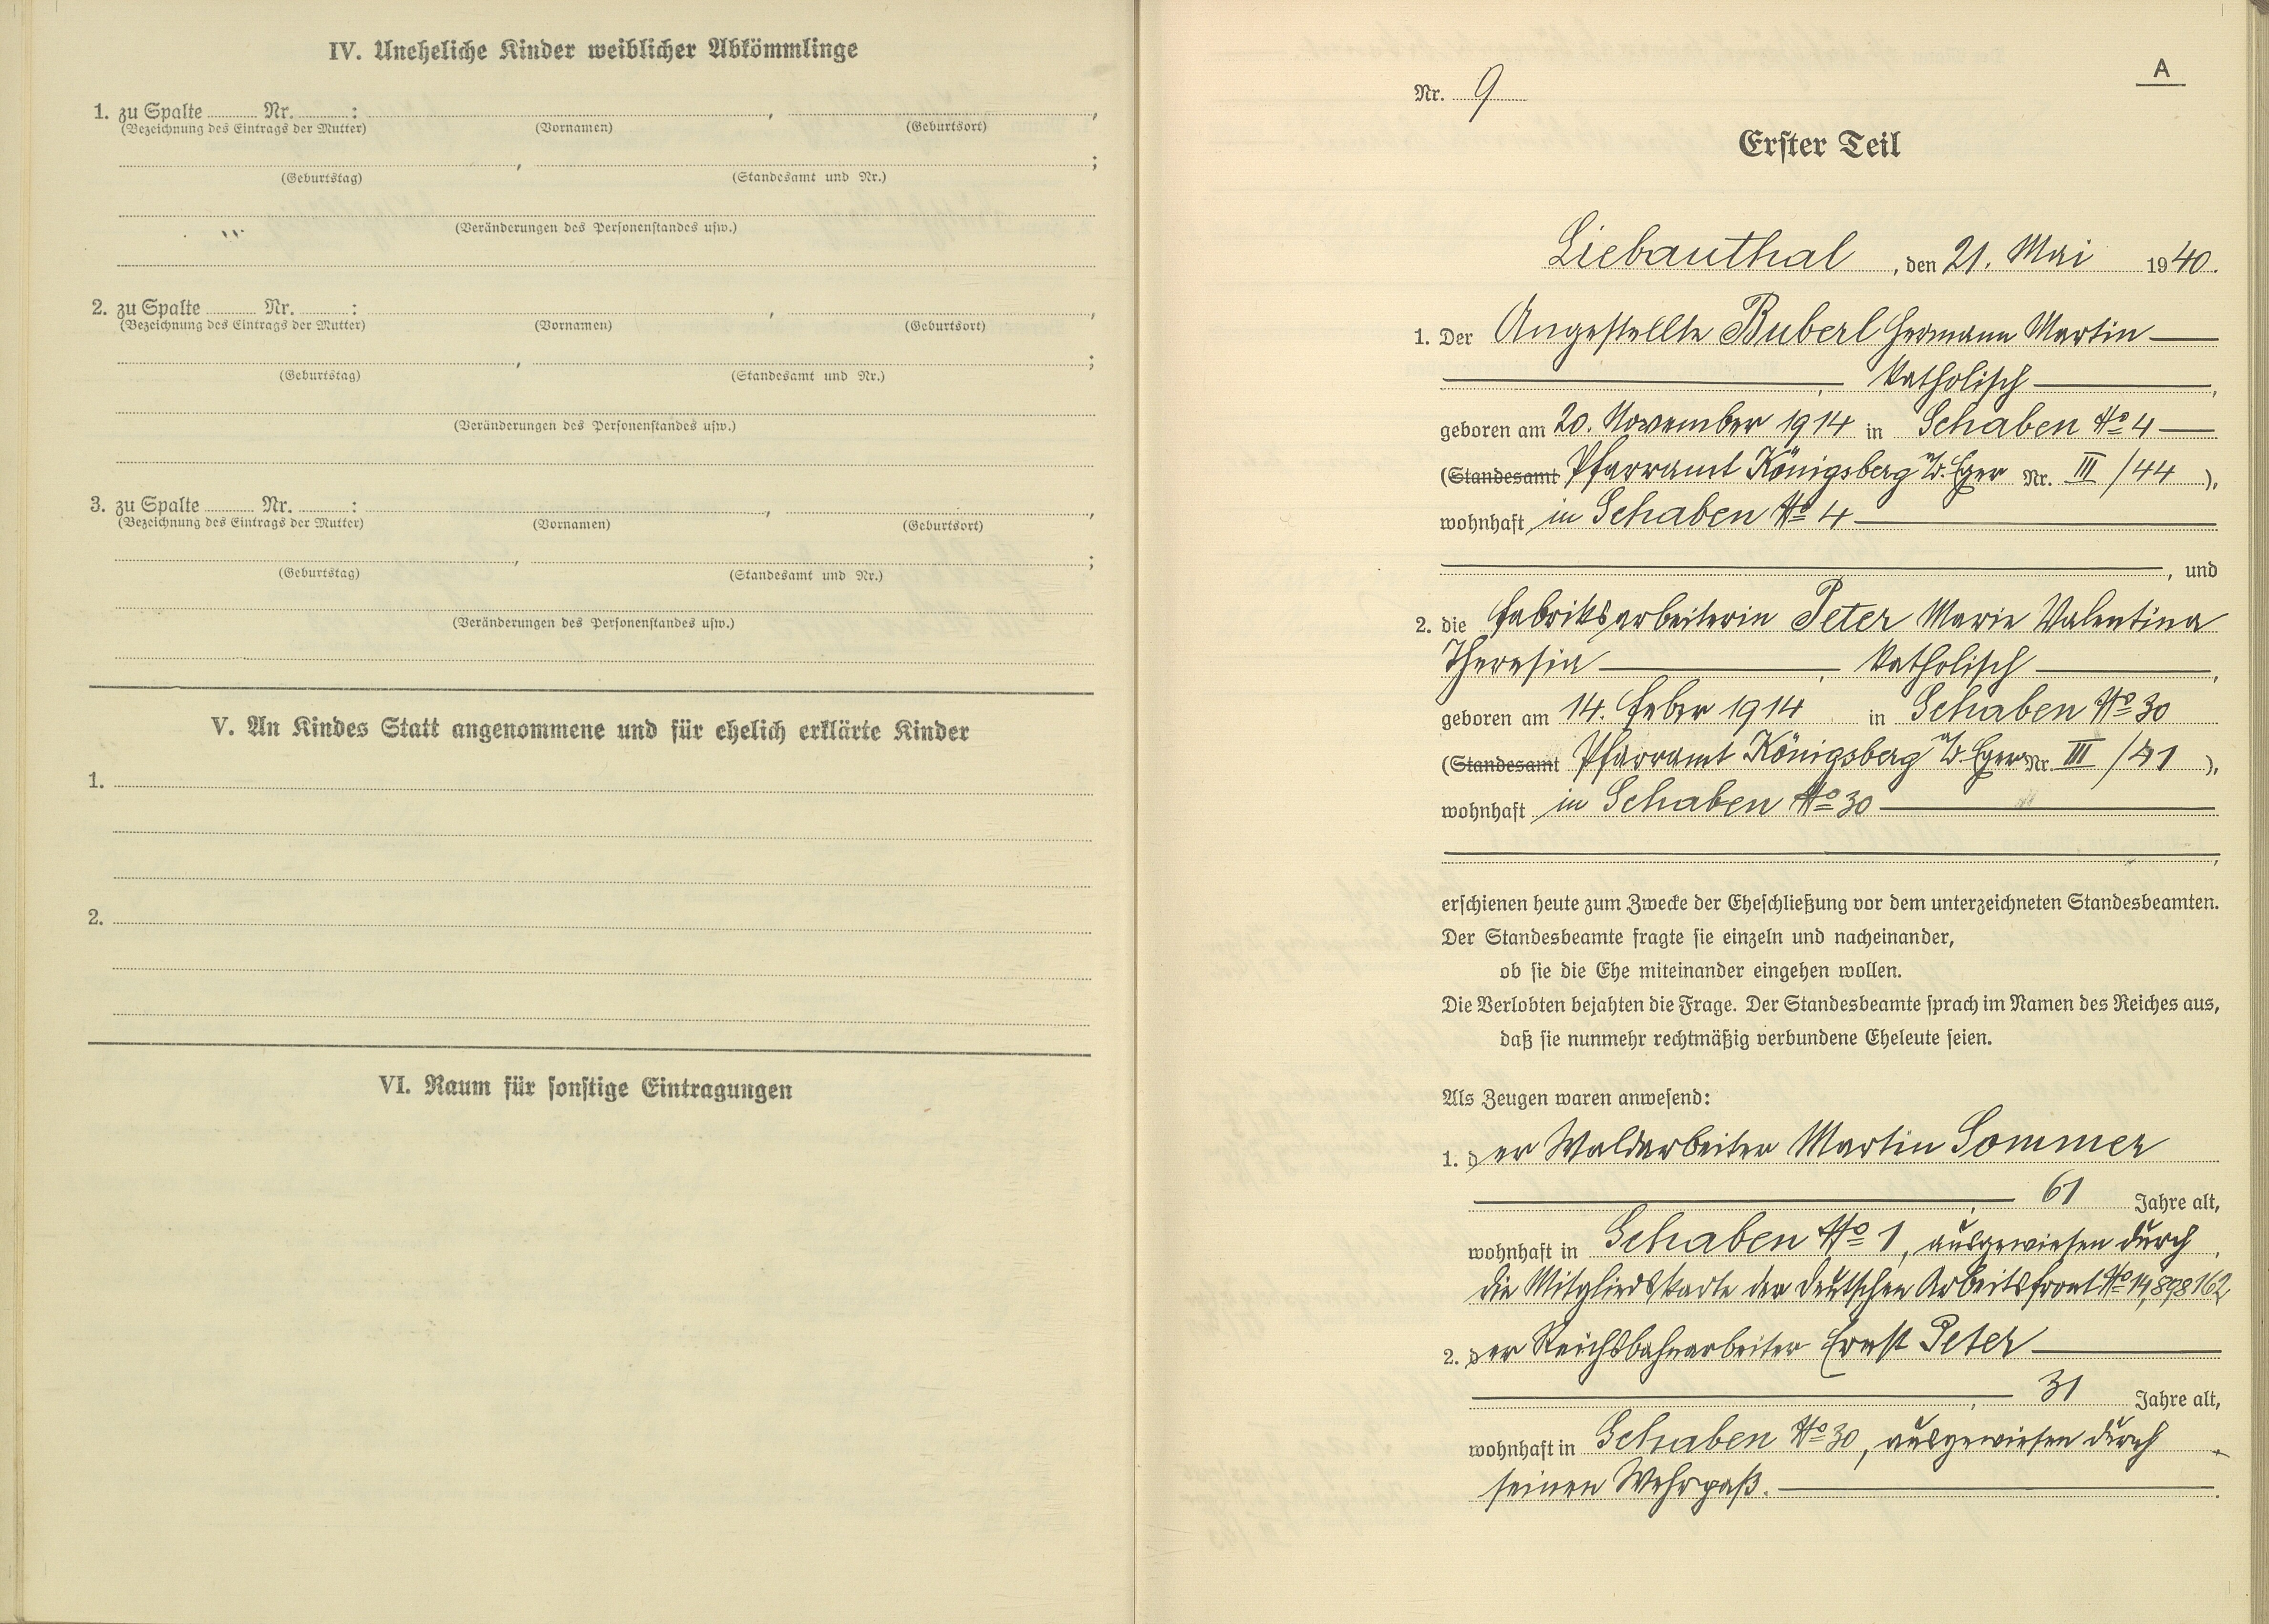 IV. Uneheliche Kinder weiblicher Abkömmlinge
1. zu Spalte ........ Nr. ........ : ........ , ........ ,
(Bezeichnung des Eintrags der Mutter) (Vornamen) (Geburtsort)
........ , ........ ;
(Geburtstag) (Standesamt und Nr.)
(Veränderungen des Personenstandes usw.)
2. zu Spalte ........ Nr. ........ : ........ , ........ ,
(Bezeichnung des Eintrags der Mutter) (Vornamen) (Geburtsort)
........ , ........ ;
(Geburtstag) (Standesamt und Nr.)
(Veränderungen des Personenstandes usw.)
3. zu Spalte ........ Nr. ........ : ........ , ........ ,
(Bezeichnung des Eintrags der Mutter) (Vornamen) (Geburtsort)
........ , ........ ;
(Geburtstag) (Standesamt und Nr.)
(Veränderungen des Personenstandes usw.)
V. An Kindes Statt angenommene und für ehelich erklärte Kinder
1.
2.
VI. Raum für sonstige Eintragungen
A
Nr. 9
Erster Teil
Liebauthal, den 21. Mai 1940.
1. Der Angestellte Buberl Hermann Martin —
—, katholisch —,
geboren am 20. November 1914 in Schaben No 4 —
(Standesamt Pfarramt Königsberg a/d. Eger Nr. III/44),
wohnhaft in Schaben No 4 —
—, und
2. die Fabriksarbeiterin Peter Marie Valentina
Theresia —, katholisch —,
geboren am 14. Feber 1914 in Schaben No 30
(Standesamt Pfarramt Königsberg a/d. Eger Nr. III/41),
wohnhaft in Schaben No 30 —
—,
erschienen heute zum Zwecke der Eheschließung vor dem unterzeichneten Standesbeamten.
Der Standesbeamte fragte sie einzeln und nacheinander,
ob sie die Ehe miteinander eingehen wollen.
Die Verlobten bejahten die Frage. Der Standesbeamte sprach im Namen des Reiches aus,
daß sie nunmehr rechtmäßig verbundene Eheleute seien.
Als Zeugen waren anwesend:
1. der Waldarbeiter Martin Sommer
—, 61 Jahre alt,
wohnhaft in Schaben No 1, ausgewiesen durch,
die Mitgliedskarte der deutschen Arbeitsfront No 14,898162
2. der Reichsbahnarbeiter Ernst Peter —
—, 31 Jahre alt,
wohnhaft in Schaben No 30, ausgewiesen durch
seinen Wehrpaß. —.